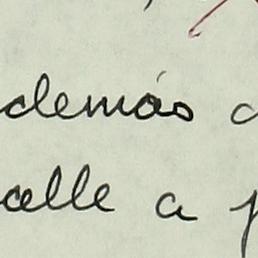 demás
calle a